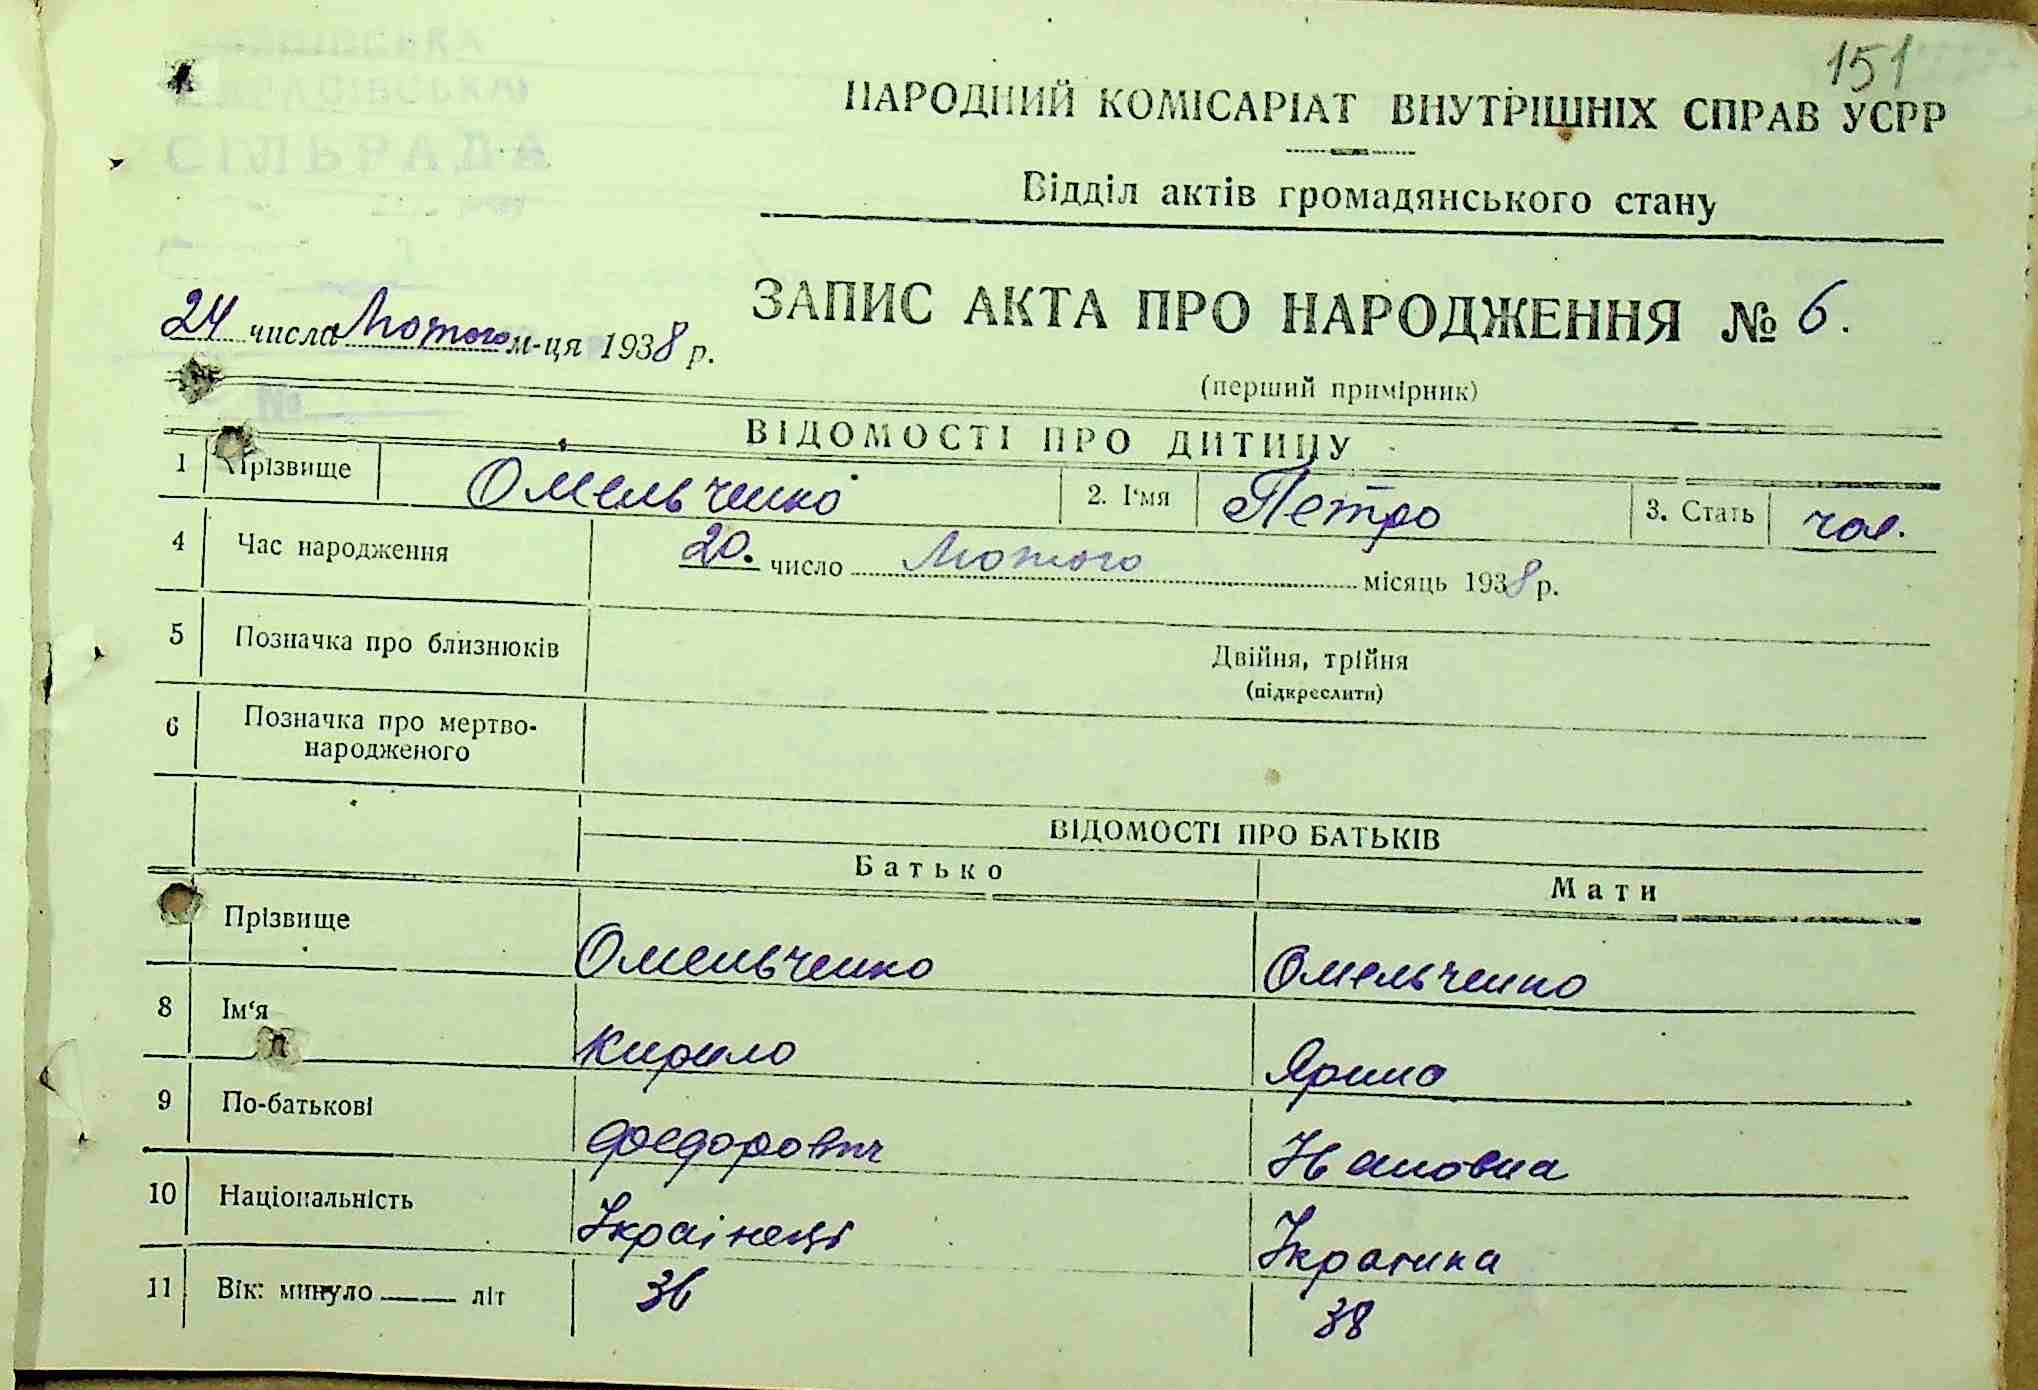 151
НАРОДНИЙ КОМІСАРІАТ ВНУТРІШНІХ СПРАВ УСРР
СІЛЬРАДА
Відділ актів громадянського стану
ЗАПИС АКТА ПРО НАРОДЖЕННЯ № 6.
24 числа Лютого м-ця 1938 р.
(перший примірник)
№
ВІДОМОСТІ ПРО ДИТИНУ
1 Прізвище Омельченко 2. І'мя Петро 3. Стать чол.
4 Час народження 20. число Лютого місяць 1938 р.
5 Позначка про близнюків Двійня, трійня
(підкреслити)
6 Позначка про мертво-
народженого
ВІДОМОСТІ ПРО БАТЬКІВ
Батько Мати
Прізвище Омельченко Омельченко
8 Ім'я Кирило Ярина
9 По-батькові Федорович Івановна
10 Національність Українець Украінка
11 Вік: минуло —— літ 36 38